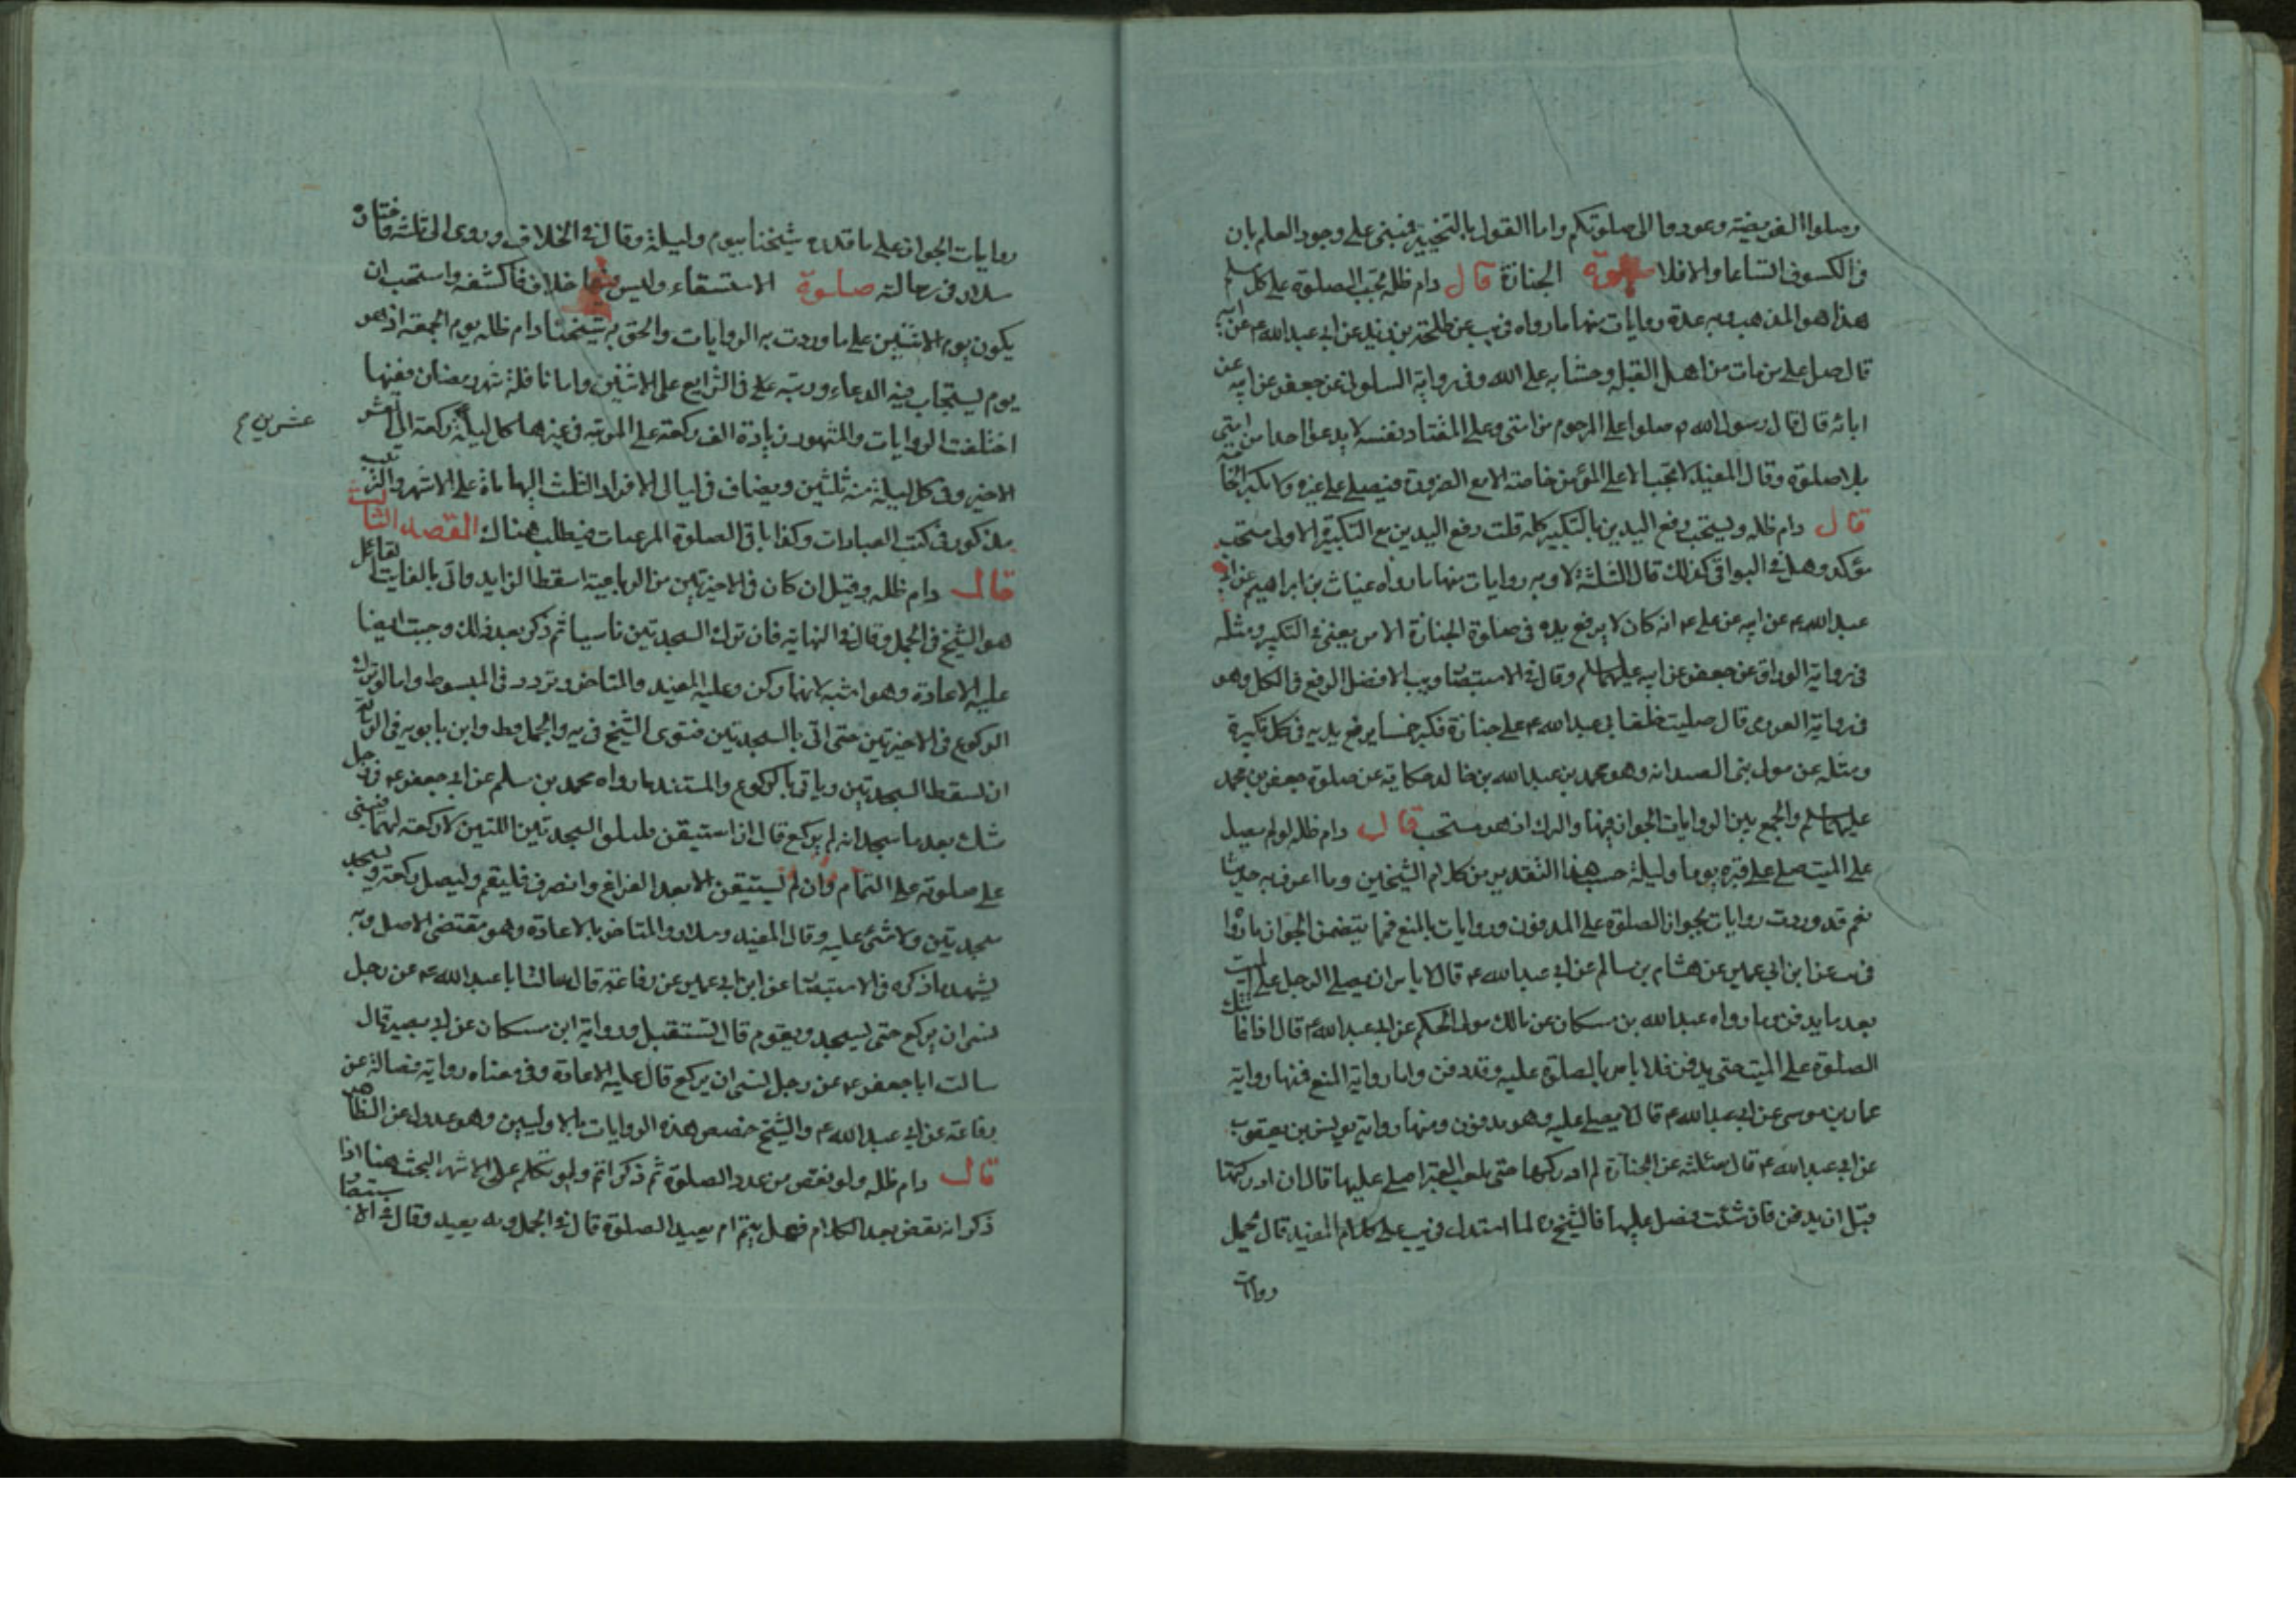 وصلوا الفريضة وعودوا الى صلوتكم واما القول بالتخيير فبنى على وجود العلم بان
فى الكسوف اتساعا والافلا صلوة الجنازة قال دام ظله تجب الصلوة على كل مسلم
هذا هو المذهب وبه عدة روايات منها ما رواه فى يب عن طلحة بن زيد عن ابى عبدالله ع عن ابيه
قال صل على من مات من اهل القبلة وحسابه على الله وفى رواية السكونى عن جعفر عن ابيه عن
ابائه قال قال رسول الله ص صلوا على المرجوم من امتى وعلى القتال نفسه لا يدعوا احدا من امتى
بلا صلوة وقال المفيد لا تجب الا على المؤمن خاصة الا مع الضرورة فيصلى على غيره
قال دام ظله ويستحب رفع اليدين بالتكبير كله قلت رفع اليدين مع التكبيرة الاولى مستحب
مؤكد وهل فى البواقى كذلك قال الثلثة لا وبه روايات منها ما رواه غياث بن ابراهيم عن ابى
عبدالله ع عن ابيه عن على ع انه كان لا يرفع يده فى صلوة الجنازة الا مرة يعنى فى التكبير ومثله
فى رواية الوراق عن جعفر عن ابيه عليهما السلم وقال فى الاستبصار ويب الافضل الرفع فى الكل وهو
فى رواية العرزمى قال صليت خلف ابى عبدالله ع على جنازة فكبر خمسا يرفع يديه فى كل تكبيرة
ومثله عن مولى بنى الصيدا انه وهو محمد بن عبدالله بن خالد حكاية عن صلوة جعفر بن محمد
عليهما السلم والجمع بين الروايات الجواز فيها والترك اذ هو مستحب قال دام ظله لو لم يصل
على الميت صلى على قبره يوما وليلة حسب هذا التقدير من كلام الشيخين وما اعرف به حديثا
نعم قد وردت روايات بجواز الصلوة على المدفون وروايات بالمنع فما يتضمن الجواز ما رواه
فى يب عن ابن ابى عمير عن هشام بن سالم عن ابى عبدالله ع قال لا باس ان يصلى الرجل على الميت
بعد ما يدفن وما رواه عبدالله بن مسكان عن مالك مولى الحكم عن ابى عبدالله ع قال اذا فاتتك
الصلوة على الميت حتى يدفن فلا باس بالصلوة عليه وقد دفن واما رواية المنع فمنها رواية
عمار بن موسى عن ابى عبدالله ع قال لا يصلى عليه وهو مدفون ومنها رواية يونس بن يعقوب
عن ابى عبدالله ع قال سئلته عن الجنازة لم ادركها حتى بلغت القبر اصلى عليها قال ان ادركتها
قبل ان يدفن فان شئت فصل عليها فالشيخ ره لما استدل فى يب على كلام المفيد قال يحمل
روايات
روايات الجواز على ما قدره شيخنا بيوم وليلة وقال فى الخلاف وروى الى ثلثة فاختاره
سلار فى رسالته صلوة الاستسقاء وليس فيها خلاف فاكشفه واستحب ان
يكون يوم الاثنين على ما وردت به الروايات والحق به شيخنا دام ظله يوم الجمعة اذ هو
يوم يستجاب فيه الدعاء ورتبه على فى الشرايع على الاثنين واما نافلة شهر رمضان ففيها
اختلفت الروايات والمشهور زيادة الف ركعة على المرتبة فى غيرها كل ليلة ركعة الى العشر
عشرين
الاخير وفى كل ليلة منه ثلثين ويضاف فى ليالى الافراد الثلث اليها ماة على الاشهر والترتيب
مذكور فى كتب العبادات وكذا باقى الصلوة المرغبات فيطلب هناك القصد الثالث
قال دام ظله وقيل ان كان فى الاخيرتين من الرباعية اسقط الزايد واتى بالفايت القائل
هو الشيخ فى الجمل وقال فى النهاية فان ترك السجدتين ناسيا ثم ذكر بعد ذلك وجبت ايضا
عليه الاعادة وهو اشبه لانهما ركن وعليه المفيد والمتاخر وتردد فى المبسوط واما لو ترك
الركوع فى الاخيرتين حتى اتى بالسجدتين فتوى الشيخ فى يه والجمل وط وابن بابويه فى الرسالة
ان تسقط السجدتين وياتى بالركوع والمستند ما رواه محمد بن مسلم عن ابى جعفر ع فى رجل
شك بعد ما سجد انه لم يركع قال ان استيقن فليلق السجدتين اللتين لا ركعة لهما فيبنى
على صلوته على التمام وان لم يستيقن الا بعد الفراغ وانصرف فليقم وليصل ركعة ويسجد
سجدتين ولا شئ عليه وقال المفيد وسلار والمتاخر بالاعادة وهو مقتضى الاصل وبه
يشهد ما ذكره فى الاستبصار عن ابن ابى عمير عن رفاعة قال سالت ابا عبدالله ع عن رجل
نسى ان يركع حتى يسجد ويقوم قال يستقبل ورواية ابن مسكان عن ابى بصير قال
سالت ابا جعفر ع عن رجل نسى ان يركع قال عليه الاعادة وفى معناه رواية فضالة عن
رفاعة عن ابى عبدالله ع والشيخ خصص هذه الروايات بالاوليين وهو عدول عن الظاهر
قال دام ظله ولو نقص من عدد الصلوة ثم ذكر اتم ولو تكلم على الاشهر البحث هنا اذا
ذكر انه نقص بعد الكلام فهل يتم ام يعيد الصلوة قال فى الجمل ويه يعيد وقال فى الاستبصار